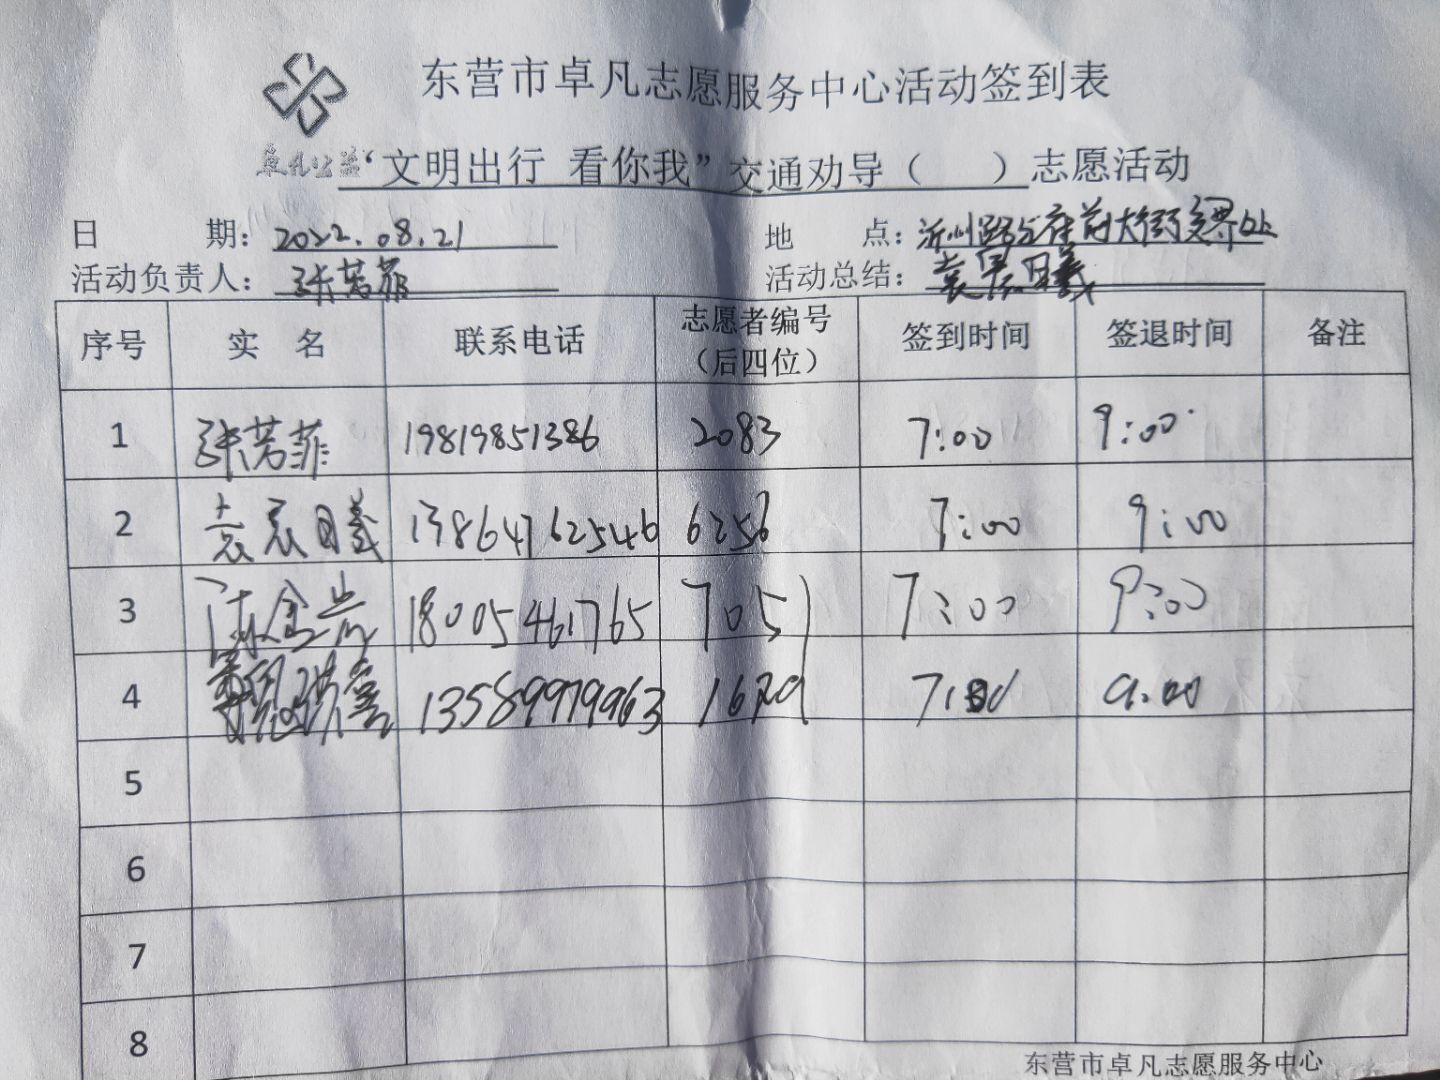 东营市卓凡志愿服务中心活动签到表
卓凡公益
“文明出行 看你我”交通劝导（ ）志愿活动
日 期：2022.08.21 地 点：沂州路与府前大街交界处
活动负责人：张芳菲 活动总结：袁晨曦
序号 实 名 联系电话 志愿者编号（后四位） 签到时间 签退时间 备注
1 张芳菲 19819851386 2083 7:00 9:00
2 袁晨曦 13864762546 6256 7:00 9:00
3 18005461765 7051 7:00 9:00
4 13589979963 7:00 9:00
5
6
7
8
东营市卓凡志愿服务中心